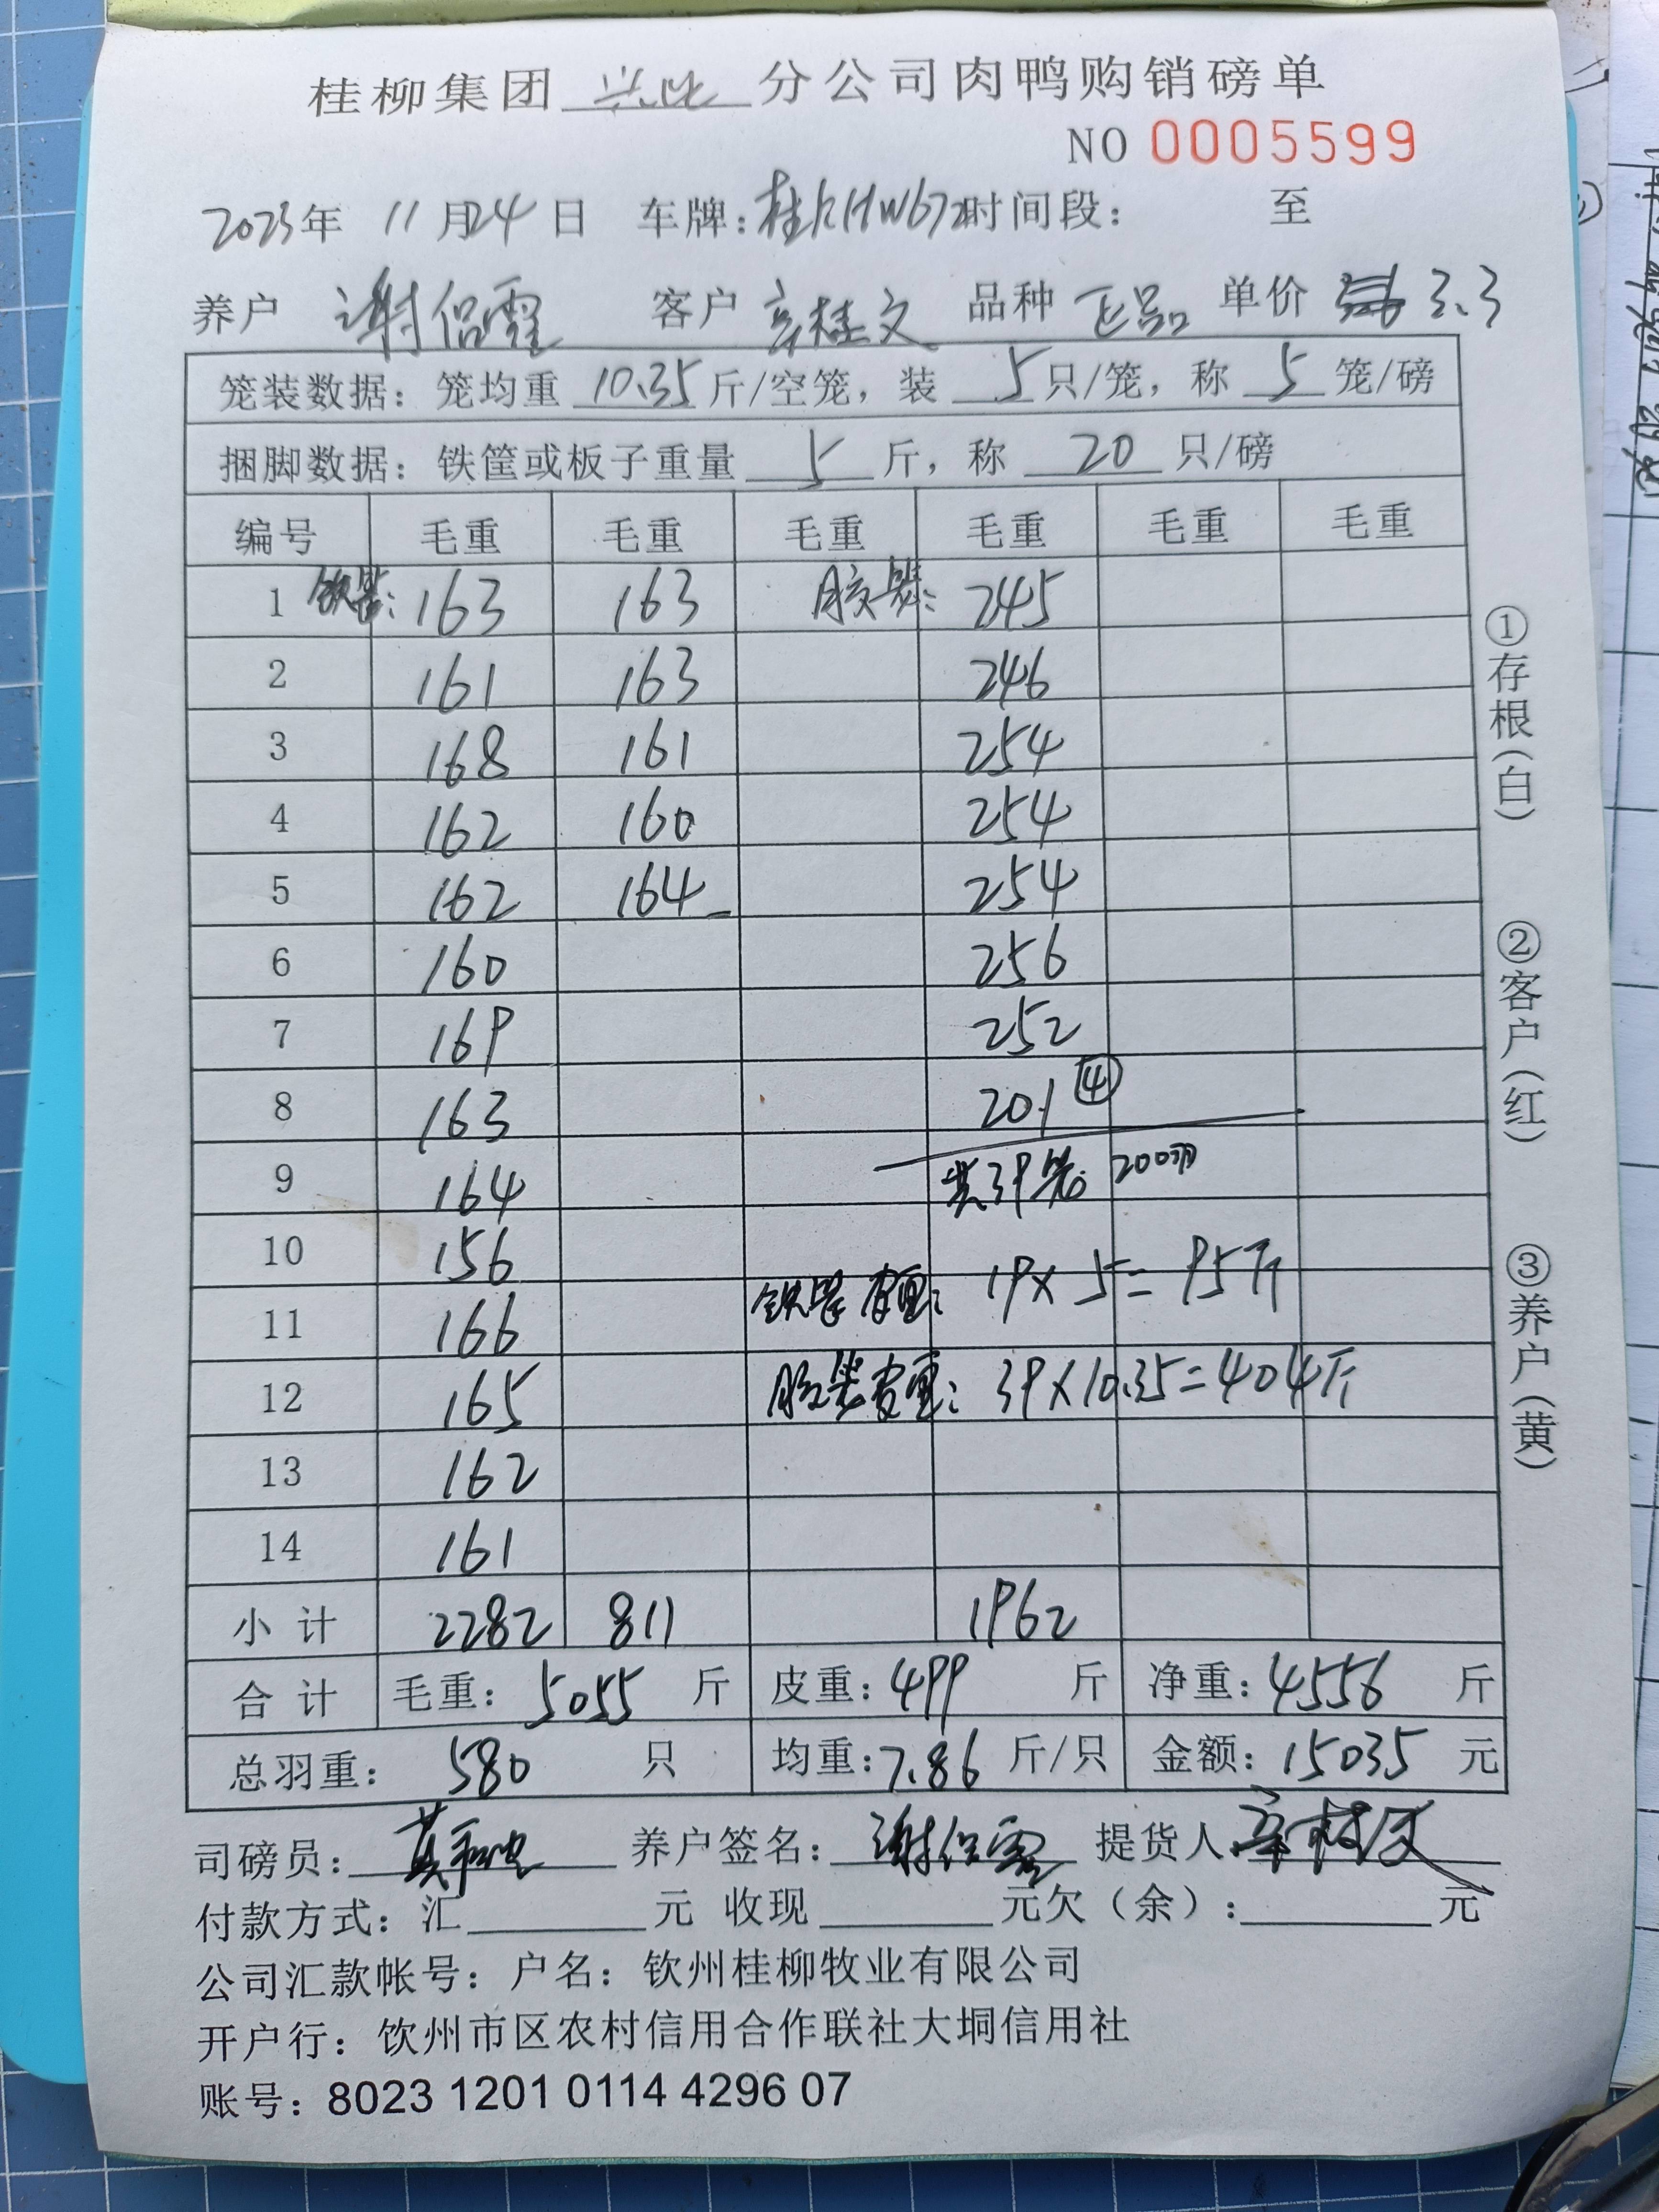 桂柳集团 兴业 分公司肉鸭购销磅单
NO 0005599
2023年 11月24日 车牌:桂KHW672时间段: 至
养户 谢侣霞 客户 辛桂文 品种 正品 单价 3.3
笼装数据: 笼均重 10.35 斤/空笼, 装 5 只/笼, 称 5 笼/磅
捆脚数据: 铁筐或板子重量 5 斤, 称 20 只/磅
编号 毛重 毛重 毛重 毛重 毛重 毛重
1 铁笼: 163 163 胶笼: 245
2 161 163 246
3 168 161 254
4 162 160 254
5 162 164 254
6 160 256
7 169 252
8 163 201 ④
9 164 共39笼: 200羽
10 156
11 166 铁笼皮重: 19×5=95斤
12 165 胶笼皮重: 39×10.35=404斤
13 162
14 161
小计 2282 811 1962
合计 毛重: 5055 斤 皮重: 499 斤 净重: 4556 斤
总羽重: 580 只 均重: 7.86 斤/只 金额: 15035 元
司磅员: 养户签名: 谢侣霞 提货人 辛桂文
付款方式: 汇 元 收现 元欠(余): 元
公司汇款帐号: 户名: 钦州桂柳牧业有限公司
开户行: 钦州市区农村信用合作联社大垌信用社
账号: 8023 1201 0114 4296 07
①存根(白)
②客户(红)
③养户(黄)